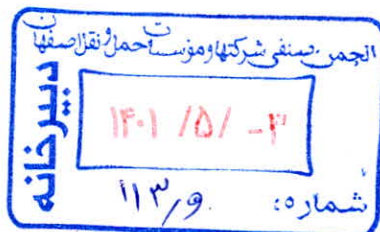 انجمن صنفی شرکتها و مؤسسات حمل و نقل اصفهان
دبیرخانه
۱۴۰۱ /۵/ -۳
شماره: ۱۱۳/و